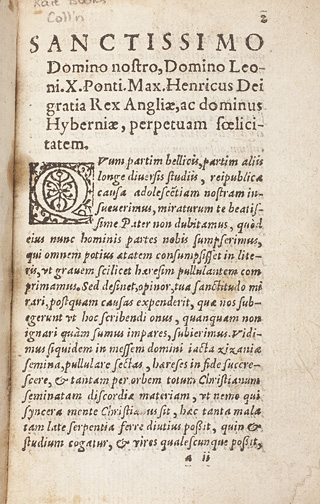 Rare Books
Coll'n
2
SANCTISSIMO
Domino nostro, Domino Leo-
ni. X. Ponti. Max. Henricus Dei
gratia Rex Angliæ, ac dominus
Hyberniæ, perpetuam fœlici-
tatem.
QVum partim bellicis, partim aliis
longe diuersis studiis, reipublicæ
causa adolescētiam nostram in-
sueuerimus, miraturum te beatis-
sime Pater non dubitamus, quòd
eius nunc hominis partes nobis sumpserimus,
qui omnem potius ætatem consumpsisset in lite-
ris, vt grauem scilicet hæresim pullulantem com
primamus. Sed desinet, opinor, tua sanctitudo mi
rari, postquam causas expenderit, quæ nos sub-
egerunt vt hoc scribendi onus, quanquam non
ignari quàm sumus impares, subierimus. Vidi-
mus siquidem in messem domini iacta zizaniæ
semina, pullulare sectas, hæreses in fide succre-
scere, & tantam per orbem totum Christianum
seminatam discordiæ materiam, vt nemo qui
syncera mente Christianus sit, hæc tanta mala
tam late serpentia ferre diutius poßit, quin &
studium cogatur, & vires qualescunque poßit,
a ii